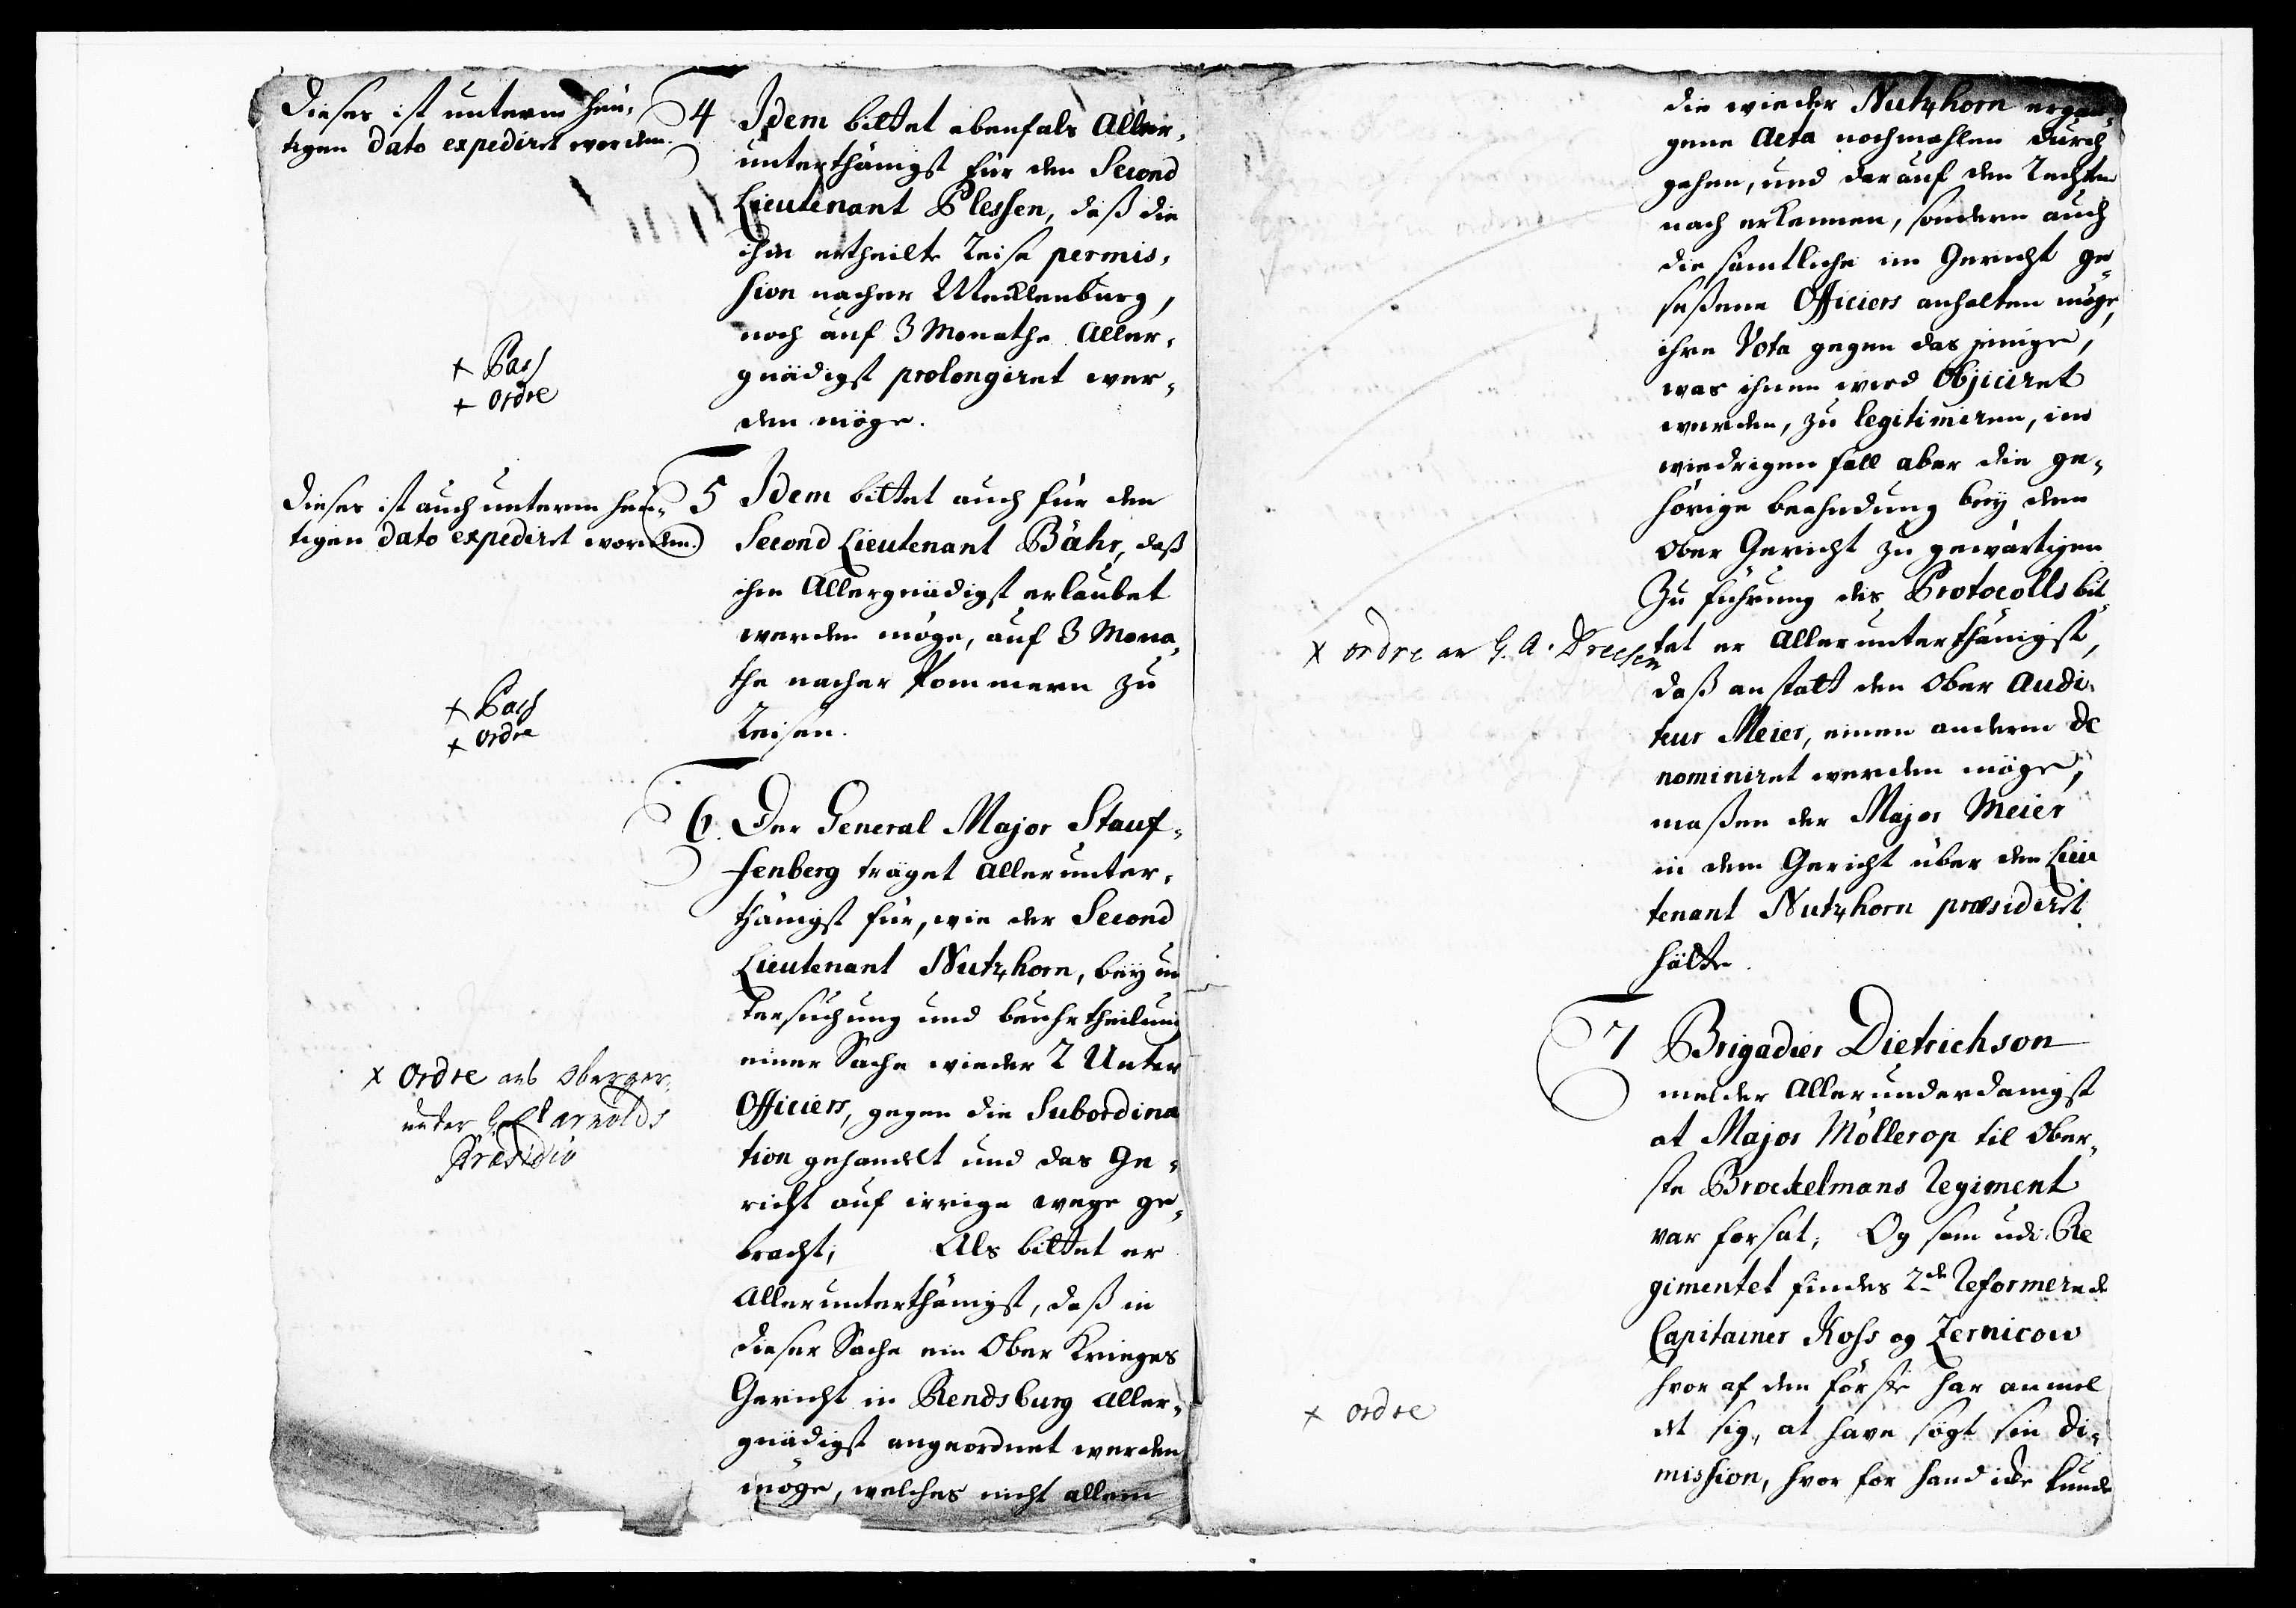 Dieses ist unterm heu-
tigen dato expediret worden.
4 Idem bittet ebenfals Aller-
unterthänigst für den Second
Lieutenant Plessen, daß die
ihm ertheilte Reise permis-
sion nacher Mecklenburg,
noch auf 3 Monathe Aller-
gnädigst prolongiret wer-
den möge.
+ Pass
+ ordre
Dieses ist auch unterm heu-
tigen dato expediret worden.
5 Idem bittet auch für den
Second Lieutenant Bähr, daß
ihm Allergnädigst erlaubet
werden möge, auf 3 Mona-
the nacher Pommern zu
Reisen.
+ Pass
+ ordre
6. Der General Major Stauf-
fenberg träget allerunter-
thänigst für, wie der Second
Lieutenant Nutzhorn, bey un
tersuchung und beuhrtheilung
einer Sache wieder 2 Unter
Officiers, gegen die Subordina
tion gehandelt und das Ge-
richt auf irrige wege ge-
bracht; Als bittet er
Allerunterthänigst, daß in
dieser Sache ein Ober Krieges
Gericht in Rendsburg Aller-
gnädigst angeordnet werden
möge, welches nicht allein
x Ordre ans Oberger.
unter Arnolds
Præsidio
die wieder Nutzhorn ergan-
gene Acta nochmahlen durch
gehen, und darauf den Rechten
nach erkennen, sondern auch
die sämtliche im Gericht ge-
seßene Officiers anhalten möge,
ihre Vota gegen das jenige,
was ihnen wird Objiciret
werden, zu legitimiren, im
wiedrigen fall aber die ge-
hörige beahndung bey dem
Ober Gericht zu gewärtigen
Zu führung des Protocolls bit-
tet er Allerunterthänigst,
daß anstatt den Ober Audi-
teur Meier, einen andern de
nominiret werden möge,
maßen der Major Meier
in dem Gericht über den Lieu
tenant Nutzhorn præsidiret
hätte.
x ordre an G. A. Dreesen
7 Brigadier Dietrichson
melder Allerunderdanigst
at Major Möllerop til Ober-
ste Brockelmans Regiment
var forsat; Og som udi Re
gimentet findes 2de Reformerede
Capitainer Koss og Zernicow
hvor af den förste har anmel
dt sig, at have sögt sin Di-
mission, hvor for hand icke kunde
x ordre